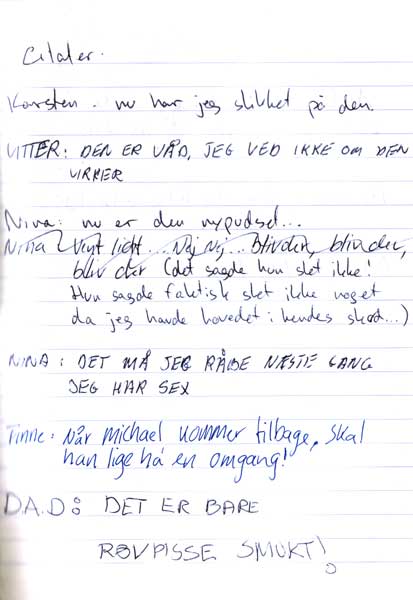 Citater.
Karsten. nu har jeg slikket på den.
UTTER: DEN ER VÅD, JEG VED IKKE OM DEN
VIRKER
Nina: nu er den nypudset...
Nina: Vent lidt... Nej Nej... blivder, blivder,
bliv der (det sagde hun slet ikke!
Hun sagde faktisk slet ikke noget
da jeg havde hovedet i hendes skød...)
NINA: DET MÅ JEG RÅDE NÆSTE GANG
JEG HAR SEX
Tinne: Når michael kommer tilbage, skal
han lige há en omgang!
D.A.D: DET ER BARE
RØVPISSE SMUKT!